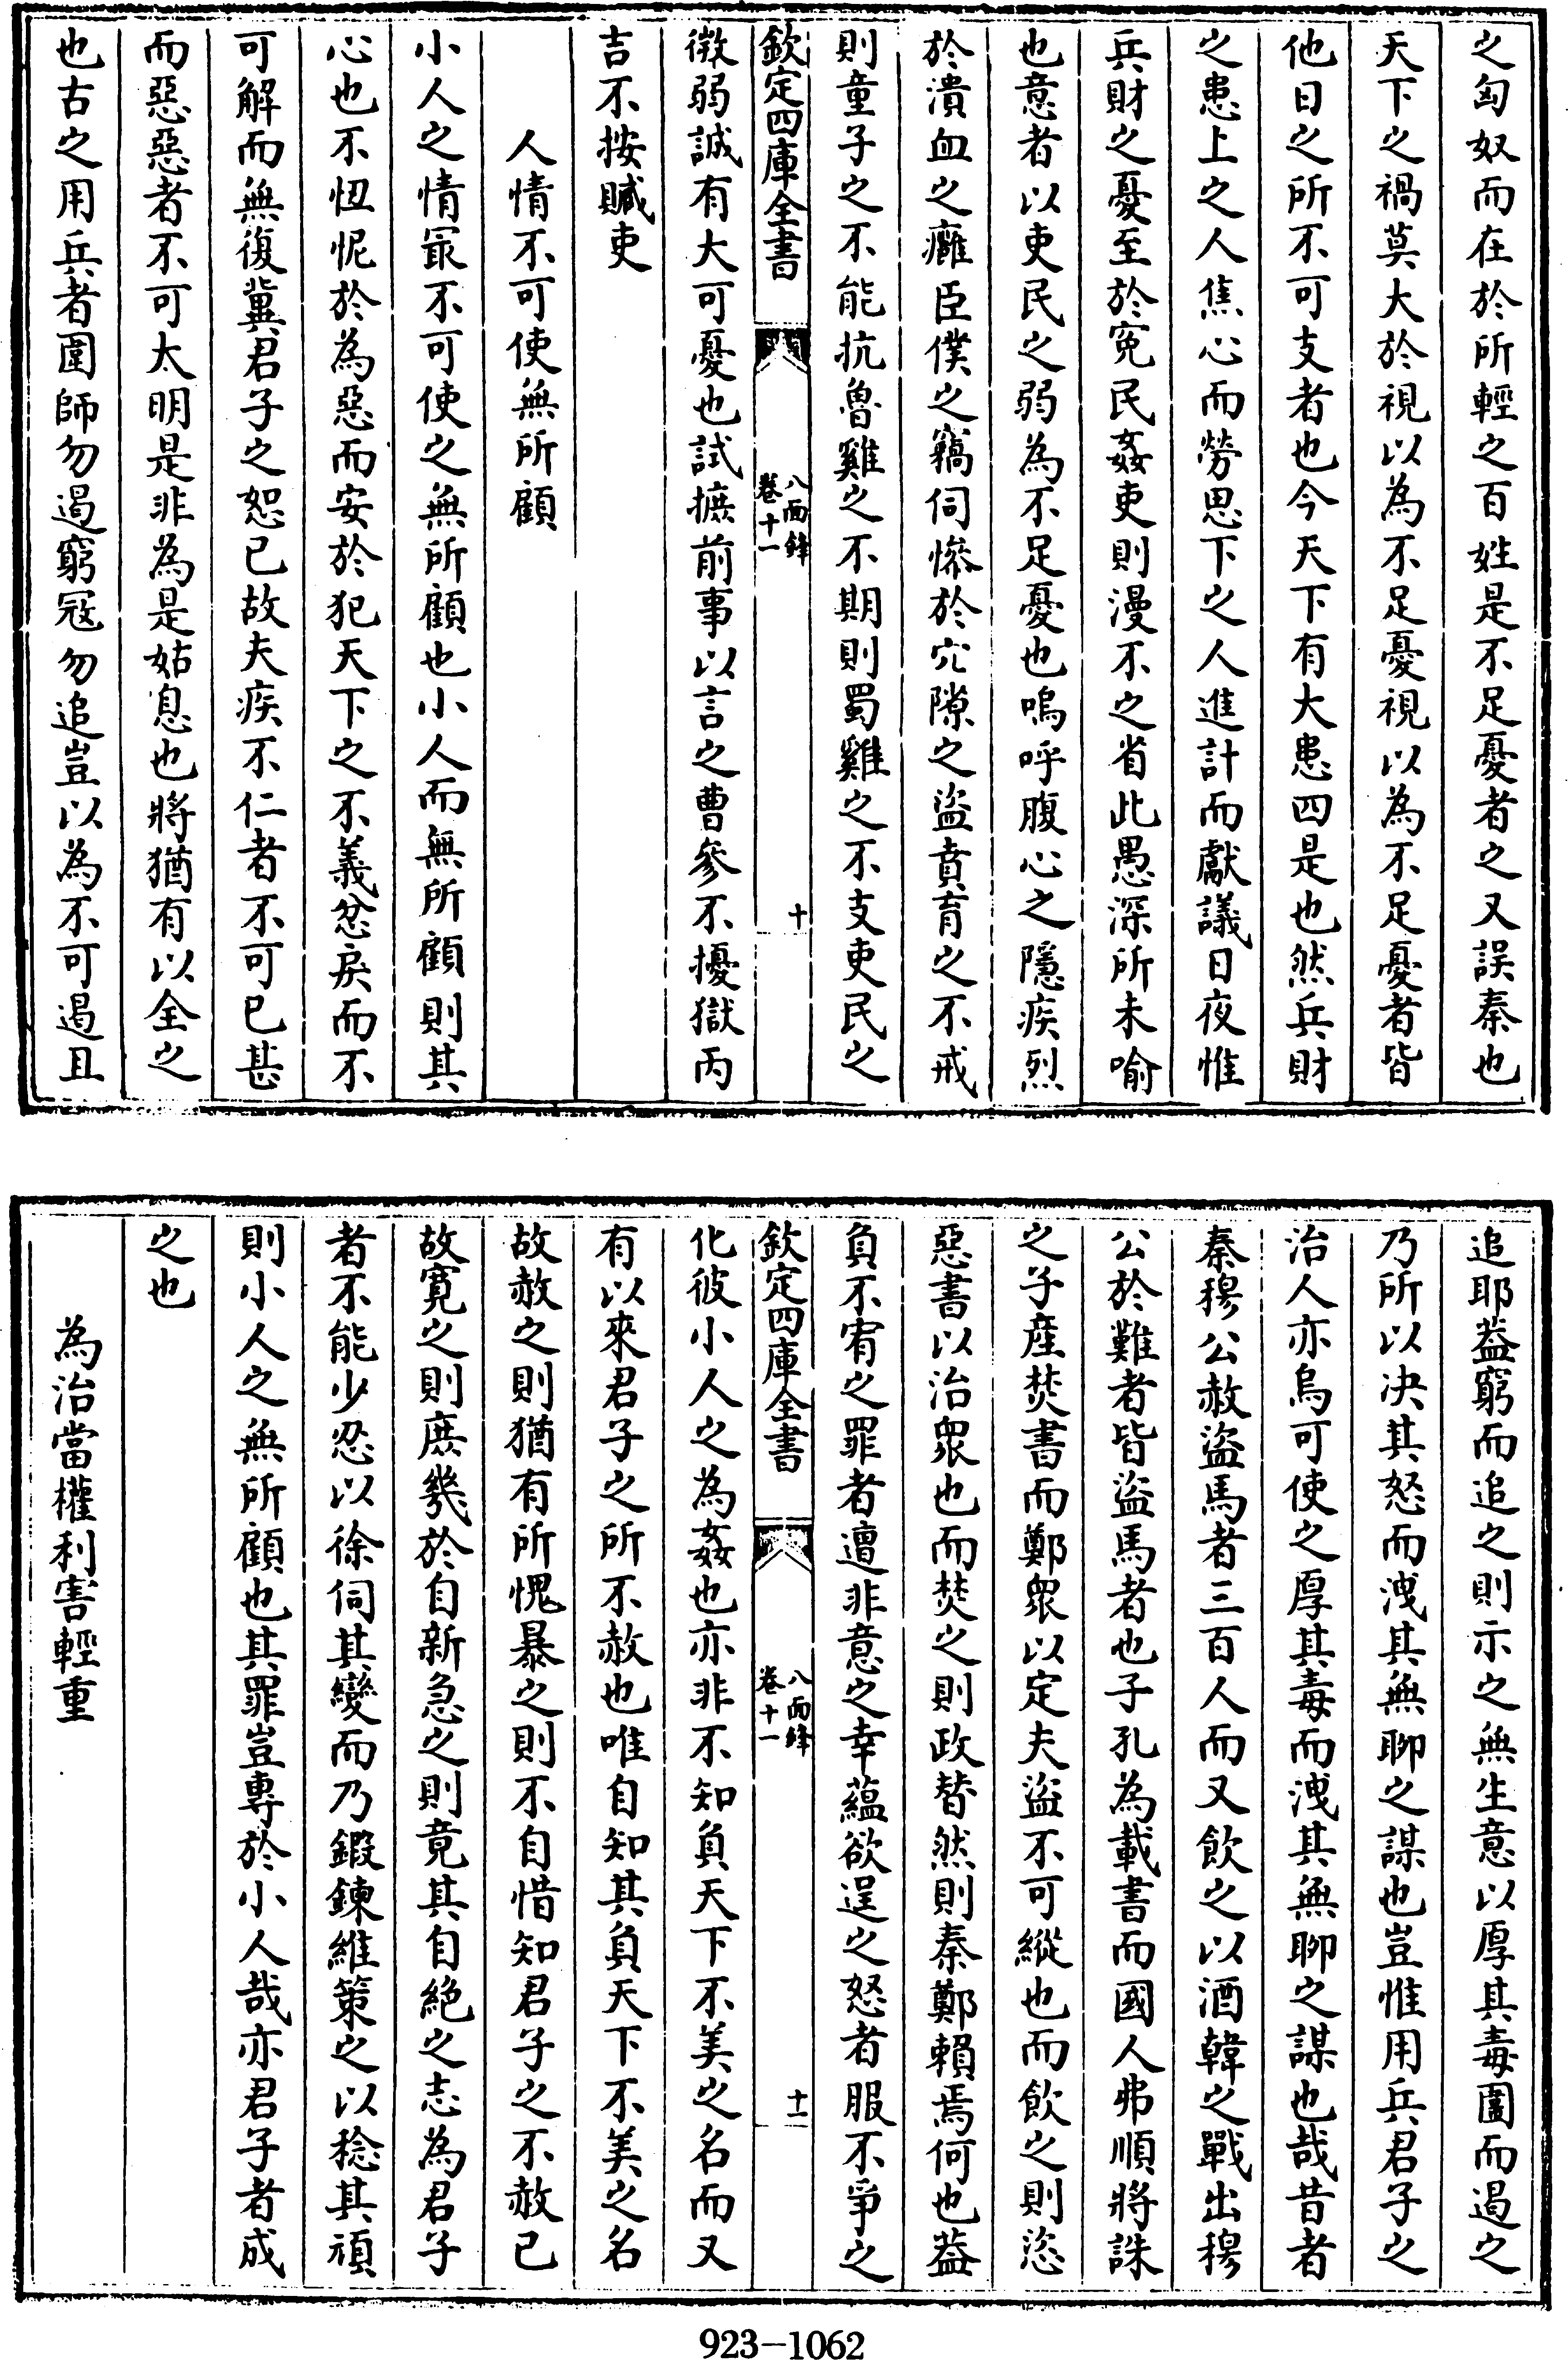 之匈奴而在於所輕之百姓是不足憂者之又誤秦也
天下之禍莫大於視以為不足憂視以為不足憂者皆
他日之所不可支者也今天下有大患四是也然兵財
之患上之人焦心而勞思下之人進計而獻議日夜惟
兵財之憂至於寃民姦吏則漫不之省此愚深所未喻
也意者以吏民之弱為不足憂也嗚呼腹心之隱疾烈
於潰血之癰臣僕之竊伺慘於穴隙之盜賁育之不戒
則童子之不能抗魯雞之不期則蜀雞之不支吏民之
欽定四庫全書
八面鋒
卷十一
十
微弱誠有大可憂也試摭前事以言之曹參不擾獄丙
吉不按贓吏
人情不可使無所顧
小人之情最不可使之無所顧也小人而無所顧則其
心也不忸怩於為惡而安於犯天下之不義忿戾而不
可解而無復冀君子之恕已故夫疾不仁者不可已甚
而惡惡者不可太明是非為是姑息也將猶有以全之
也古之用兵者圍師勿遏窮冦勿追豈以為不可遏且
追耶葢窮而追之則示之無生意以厚其毒圍而遏之
乃所以决其怒而洩其無聊之謀也豈惟用兵君子之
治人亦烏可使之厚其毒而洩其無聊之謀也哉昔者
秦穆公赦盜馬者三百人而又飲之以酒韓之戰出穆
公於難者皆盜馬者也子孔為載書而國人弗順將誅
之子產焚書而鄭衆以定夫盜不可縱也而飲之則恣
惡書以治衆也而焚之則政替然則秦鄭賴焉何也葢
負不宥之罪者遭非意之幸蘊欲逞之怒者服不爭之
欽定四庫全書
八面鋒
卷十一
十一
化彼小人之為姦也亦非不知負天下不美之名而又
有以來君子之所不赦也唯自知其負天下不美之名
故赦之則猶有所愧暴之則不自惜知君子之不赦已
故寛之則庶幾於自新急之則竟其自絕之志為君子
者不能少忍以徐伺其變而乃鍛鍊維策之以稔其頑
則小人之無所顧也其罪豈專於小人哉亦君子者成
之也
為治當權利害輕重
923-1062